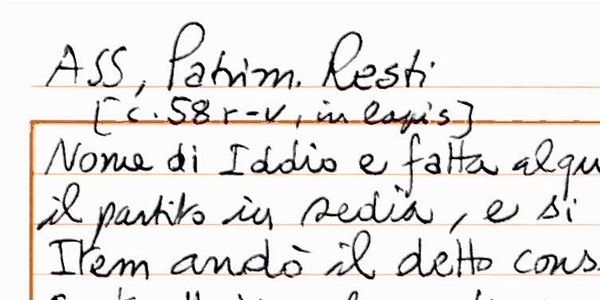 ASS, Patrim. Resti
[c. 58 r-v, in lapis]
Nome di Iddio e fatta alqu
il partito in sedia, e si
Item andò il detto cons.